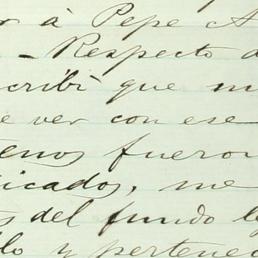 r á Pepe A
- Respecto d
cribí que m
e ver con ese
enos fueron
icados, me
s del fundo l
lo y pertenec